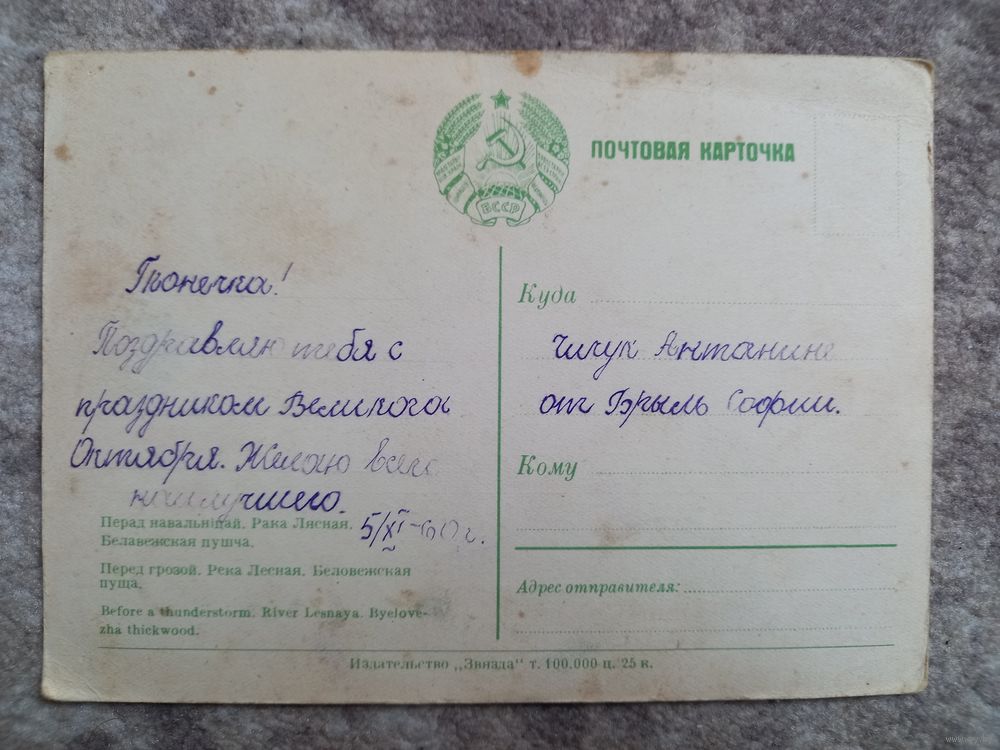 БССР
ПОЧТОВАЯ КАРТОЧКА
Тонечка!
Поздравляю тебя с
праздником Великога
Октября. Желаю всего
наилучшего.
5/XI-60 г.
Перад навальніцай. Рака Лясная.
Белавежская пушча.
Перед грозой. Река Лесная. Беловежская
пуща.
Before a thunderstorm. River Lesnaya. Byelove-
zha thickwood.
Куда
Чигук Антанине
от Брыль Софии.
Кому
Адрес отправителя:
Издательство „Звязда" т. 100.000 ц. 25 к.